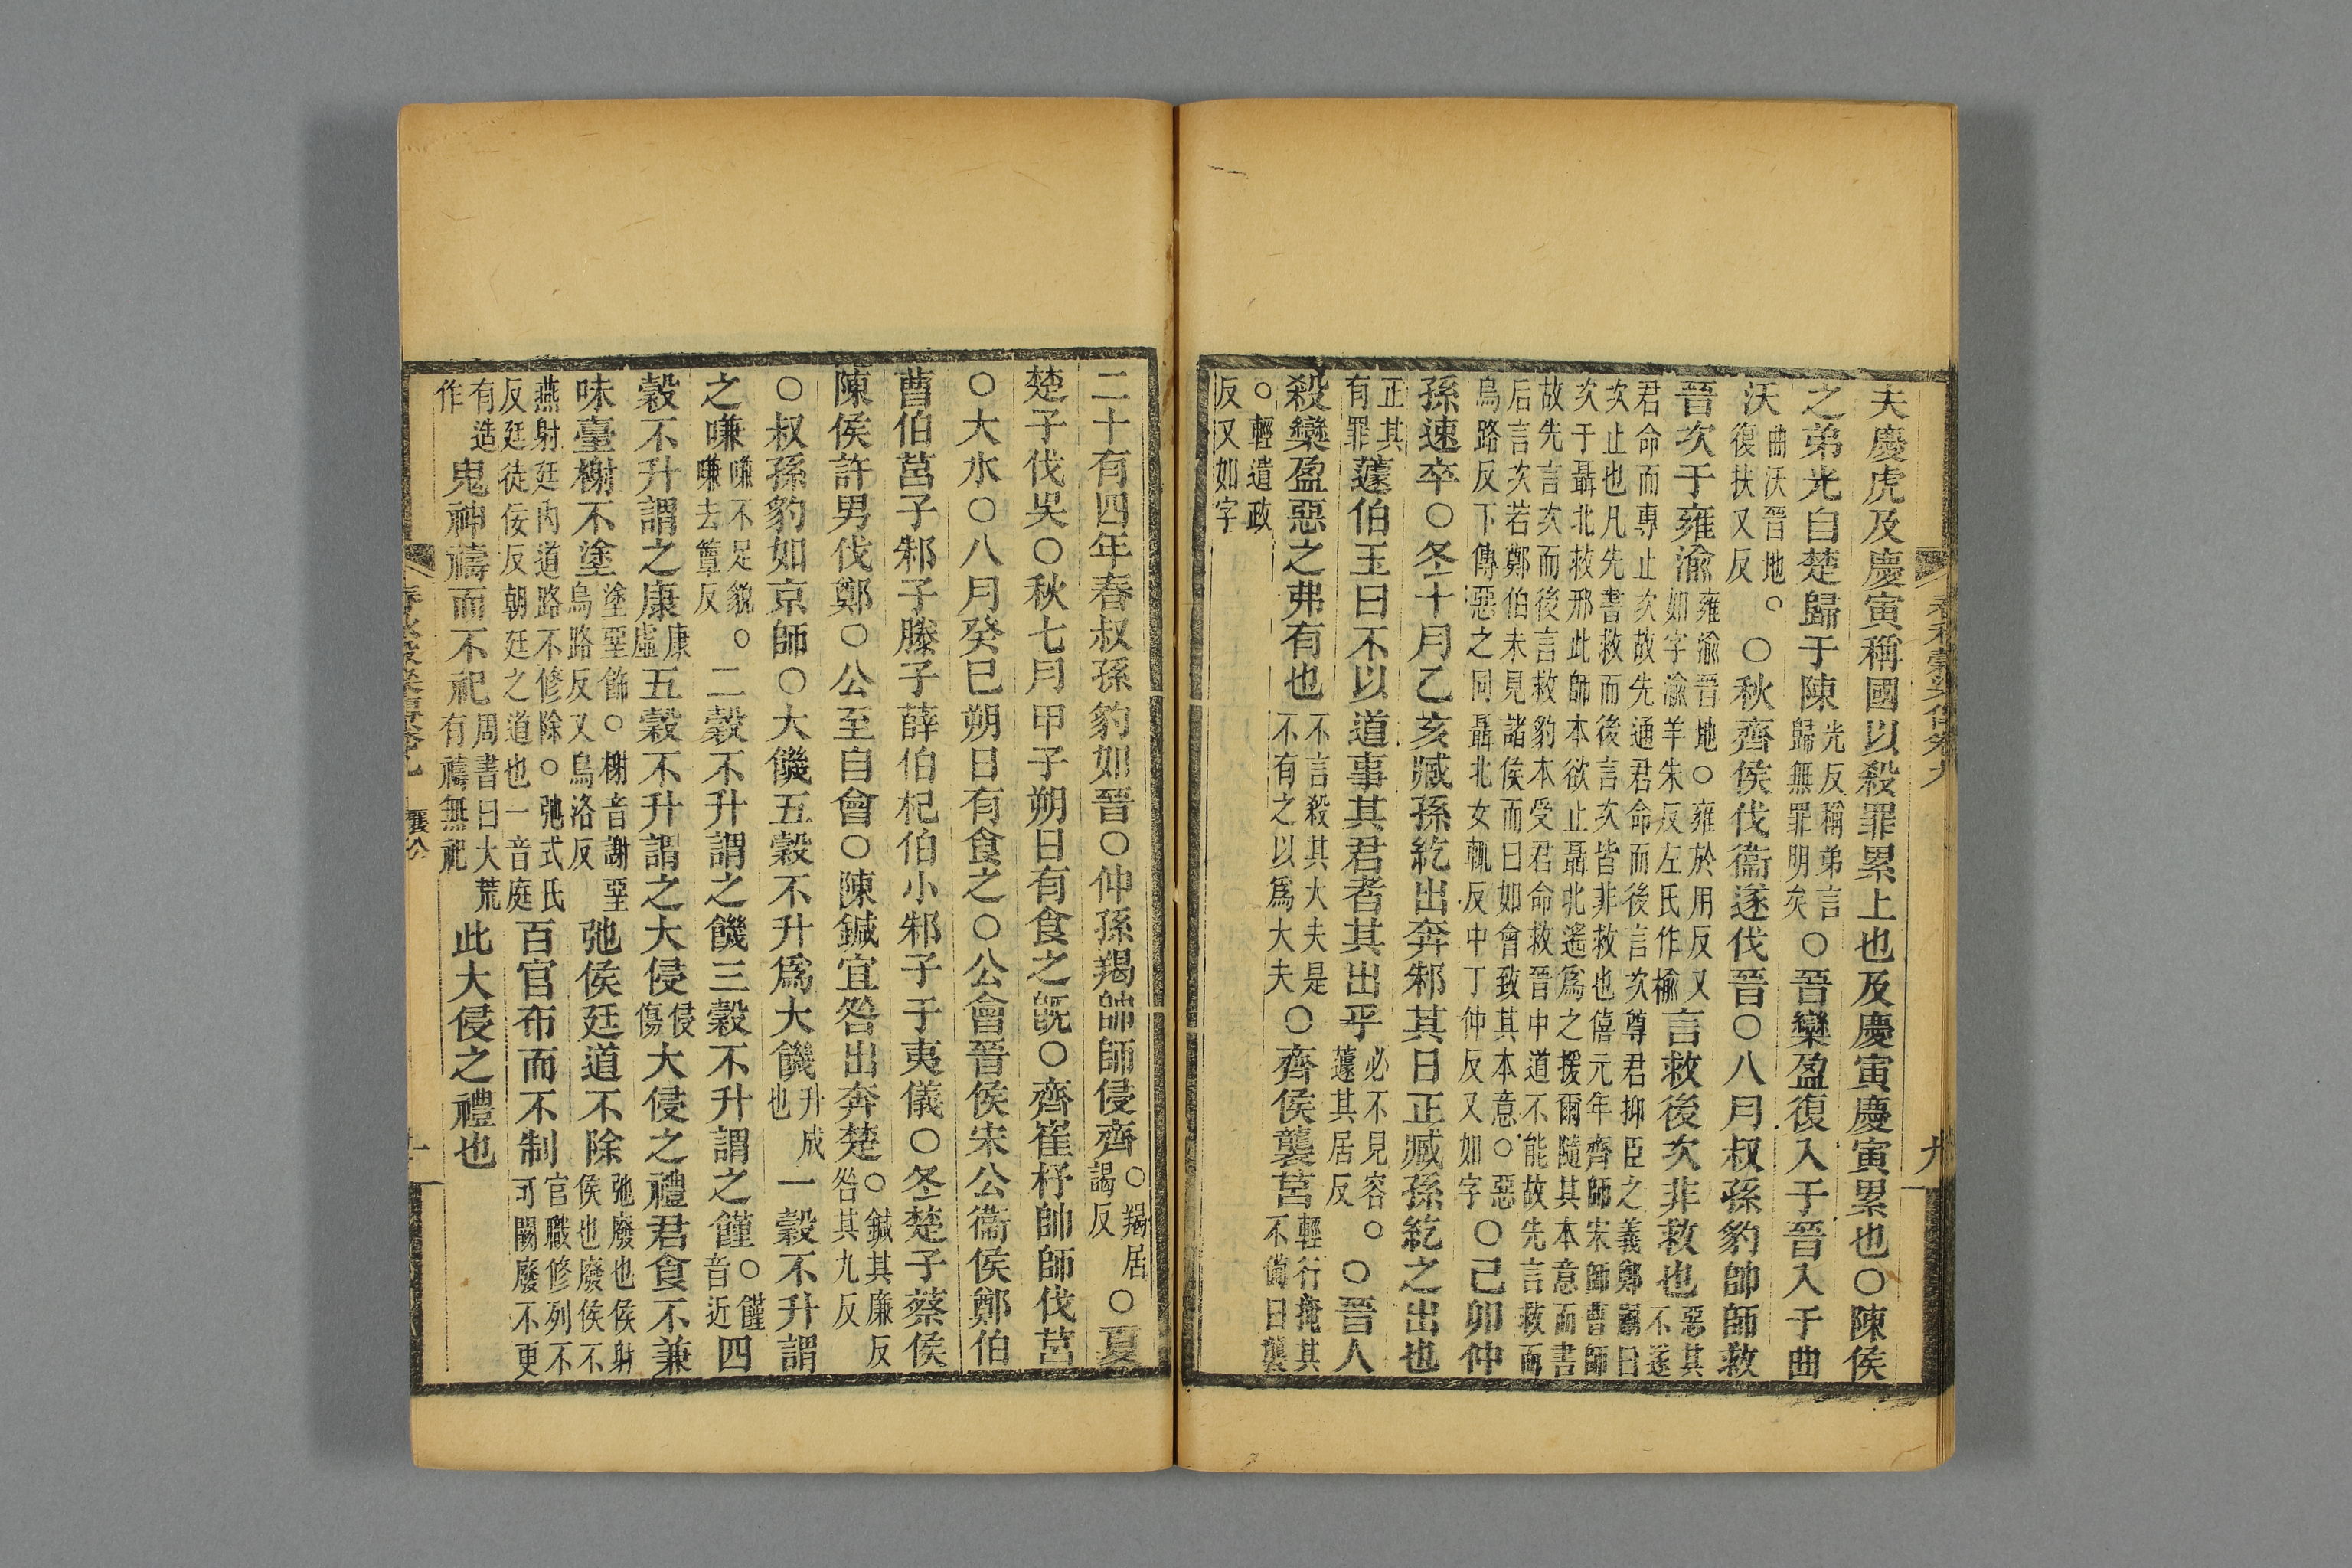 夫慶虎及慶寅稱國以殺罪累上也及慶寅慶寅累也○陳侯
之弟光自楚歸于陳光反稱弟言歸無罪明矣○晉欒盈復入于晉入于曲
沃曲沃晉地○復扶又反○秋齊侯伐衞遂伐晉○八月叔孫豹帥師救
晉次于雍渝雍渝晉地○雍於用反又如字渝羊朱反左氏作榆言救後次非救也惡其不遂
君命而專止次故先通君命而後言次尊君抑臣之義鄭嗣曰次止也凡先書救而後言次皆非救也僖元年齊師宋師曹師
次于聶北救邢此師本欲止聶北遙爲之援爾隨其本意而書故先言次而後言救豹本受君命救晉中道不能故先言救而
后言次若鄭伯未見諸侯而曰如會致其本意○惡烏路反下傳惡之同聶北女輒反中丁仲反又如字○己卯仲
孫速卒○冬十月乙亥臧孫紇出奔邾其日正臧孫紇之出也
正其有罪蘧伯玉曰不以道事其君者其出乎必不見容○蘧其居反○晉人
殺欒盈惡之弗有也不言殺其大夫是不有之以爲大夫○齊侯襲莒輕行掩其不備曰襲
○輕遣政反又如字
春秋穀梁傳卷九
九
二十有四年春叔孫豹如晉○仲孫羯帥師侵齊○羯居謁反○夏
楚子伐吳○秋七月甲子朔日有食之旣○齊崔杼帥師伐莒
○大水○八月癸巳朔日有食之○公會晉侯宋公衞侯鄭伯
曹伯莒子邾子滕子薛伯杞伯小邾子于夷儀○冬楚子蔡侯
陳侯許男伐鄭○公至自會○陳鍼宜咎出奔楚○鍼其廉反咎其九反
○叔孫豹如京師○大饑五穀不升爲大饑升成也一穀不升謂
之嗛嗛不足貌○嗛去簟反二穀不升謂之饑三穀不升謂之饉○饉音近四
穀不升謂之康康虛五穀不升謂之大侵侵傷大侵之禮君食不兼
味臺榭不塗塗堊飾○榭音謝堊烏路反又烏洛反弛侯廷道不除弛廢也侯射侯也廢侯不
燕射廷內道路不修除○弛式氏反廷徒佞反朝廷之道也一音庭百官布而不制官職修列不可闕廢不更
有造作鬼神禱而不祀周書曰大荒有禱無祀此大侵之禮也
春秋穀梁傳卷九
襄公
十